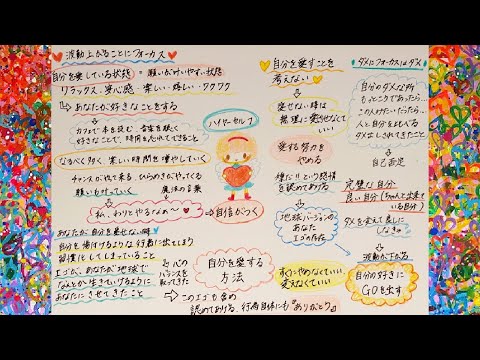 波動上がることにフォーカス
自分を愛している状態 = 願いが叶いやすい状態
リラックス・安心感・楽しい・嬉しい・ワクワク
あなたが好きなことをする
カフェで本を読む 音楽を聴く
好きなことで、時間を忘れてできること
なるべく多く 楽しい時間を増やしていく
チャンスがやって来る、ひらめきがやってくる
願い叶っていく
魔法の言葉
私、わりとやるじゃあ〜ん
自信がつく
あなたが自分を愛せない時
自分を傷付けるような行動に出てしまう
習慣化してしまっていること
エゴが、あなたが地球で
なんとか生きていけるように
あなたにさせてきたこと
心の
バランスを
取ってきた
このエゴも含め
認めてあげる、行為自体にも『ありがとう』
ハイヤーセルフ
自分を愛する
方法
自分を愛すことを
考えない
愛せない時は
無理に愛せなくていい
愛する努力を
やめる
嫌だ!!という感情
を認めてあげる
地球バージョンの
あなた
エゴの存在
すぐにやめなくていい
変えなくていい
ダメにフォーカスはダメ
自分のダメな所
もっとこうであったら…
この人みたいだったら…
人と自分をよくくらべる
ダメ出しされてきたこと
自己否定
完璧な自分
良い自分(ちゃんと出来ている自分)
ダメを変えて良しに
しなきゃ
波動が下がる
自分の好きに
GOを出す